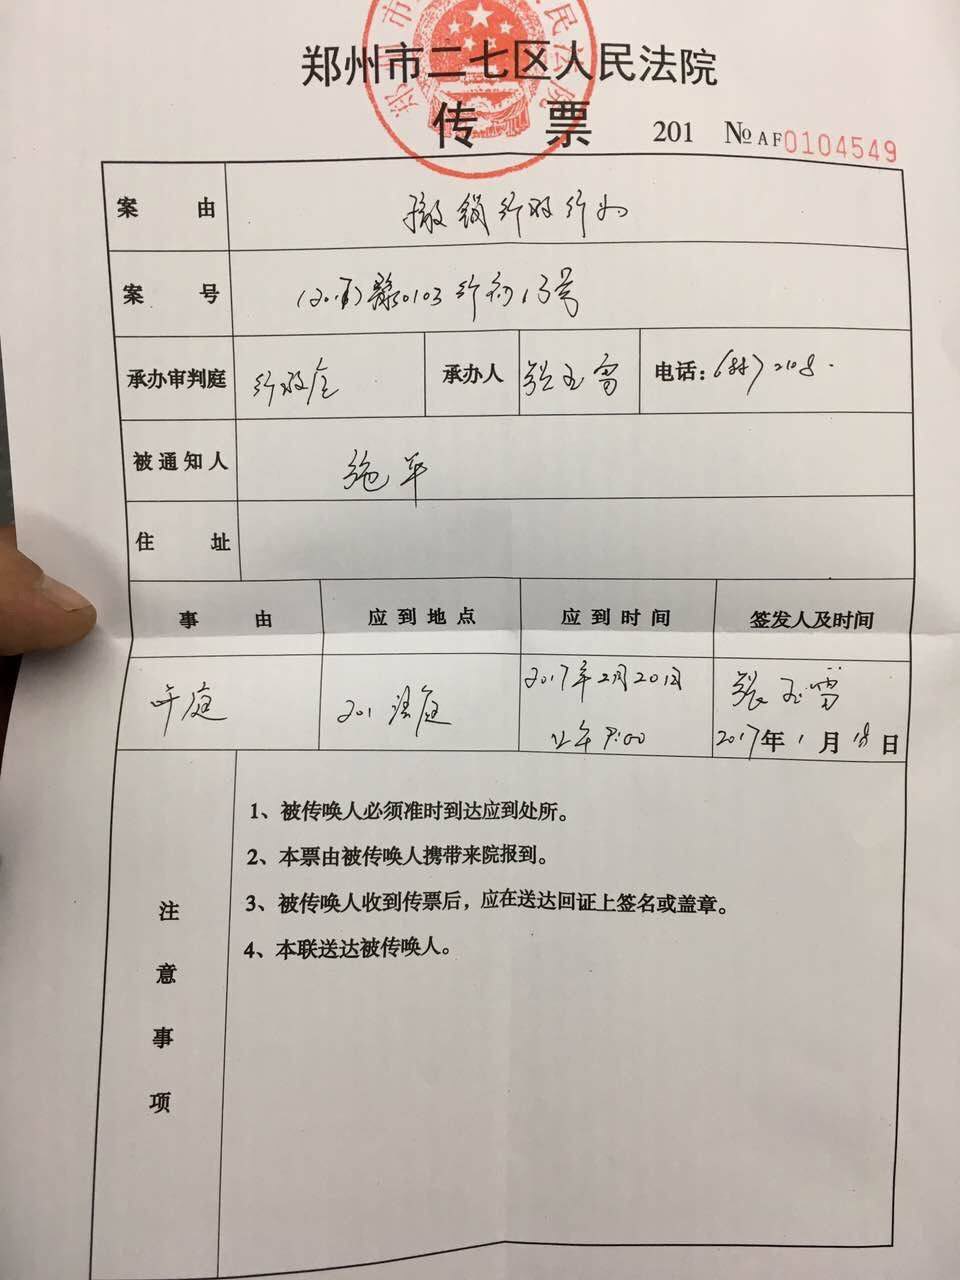 郑州市二七区人民法院
传 票 201 № AF0104549
案 由 撤销行政行为
案 号 (2017)豫0103行初13号
承办审判庭 行政庭 承办人 张玉雪 电话：
被通知人 施平
住 址
事 由 应到地点 应到时间 签发人及时间
开庭 201法庭 2017年2月20日 张玉雪
上午9:00 2017年1月18日
注意事项
1、被传唤人必须准时到达应到处所。
2、本票由被传唤人携带来院报到。
3、被传唤人收到传票后，应在送达回证上签名或盖章。
4、本联送达被传唤人。